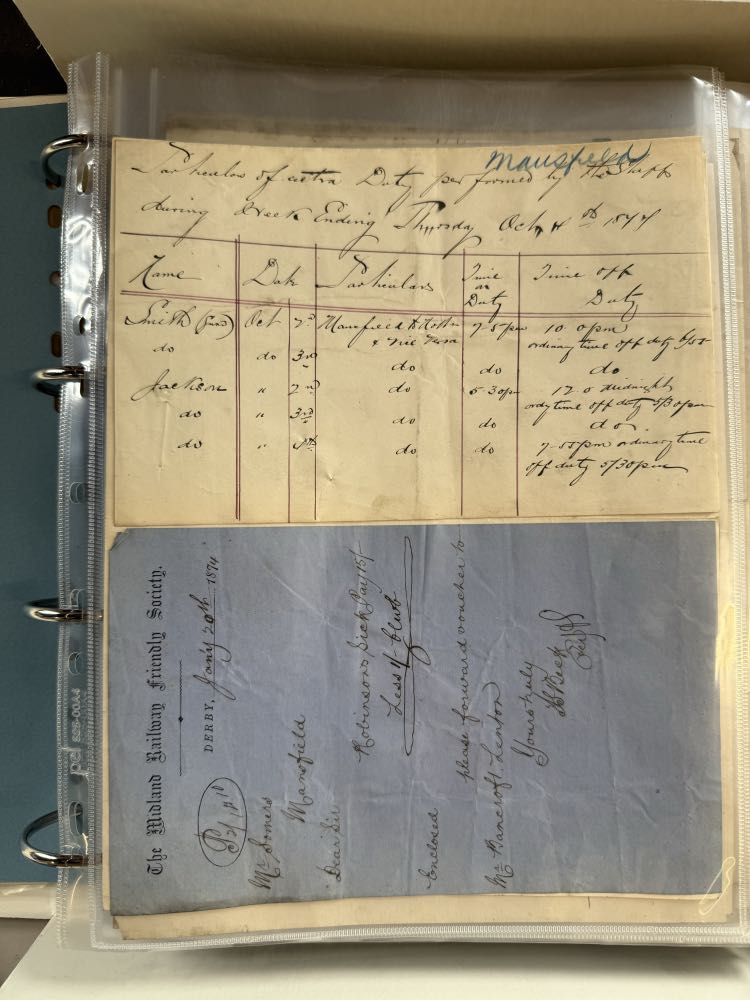 Mansfield
Particulars of extra Duty performed by the Staff
during Week Ending Thursday Oct 4th 1877
Name Date Particulars Time on Duty Time off Duty
Smith Oct 2nd Mansfield to & vice versa 7-5pm 10 0pm
ordinary time off duty
do do 3rd do do do
Jackson " 2nd do 5-30pm 12.0 Midnight
ordy time off duty 5/30pm
do " 3rd do do do
do " 4th do do 7-55pm ordinary time
off duty 5/30pm
The Midland Railway Friendly Society.
DERBY, Jany 20th 1874
Mr Somers
Mansfield
Dear Sir
Robinsons Sick Pay 15/-
Less 1/- Club
Enclosed please forward voucher to
Mr Bancroft. Lenton
Yours truly